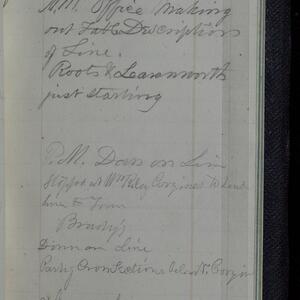 A.M. Office making
out Table Descriptions
of Line.
Roots & Leavenworth
just starting
P.M. Down on Line
Stopped at Wm Riley Corzines to
to Town
Brady's
Down on Line
Party Cross Sections Corzin